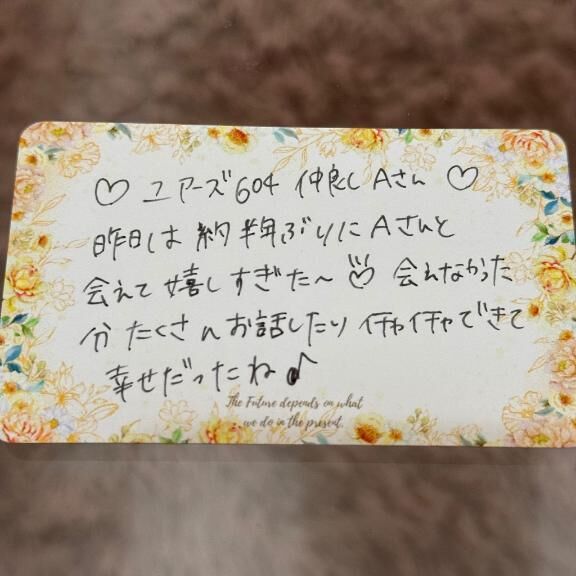 ♡ ユアーズ604 仲良しAさん ♡
昨日は約半年ぶりにAさんと
会えて嬉しすぎた〜♡ 会えなかった
分たくさんお話したりイチャイチャできて
幸せだったね♪
The Future depends on what
we do in the present.